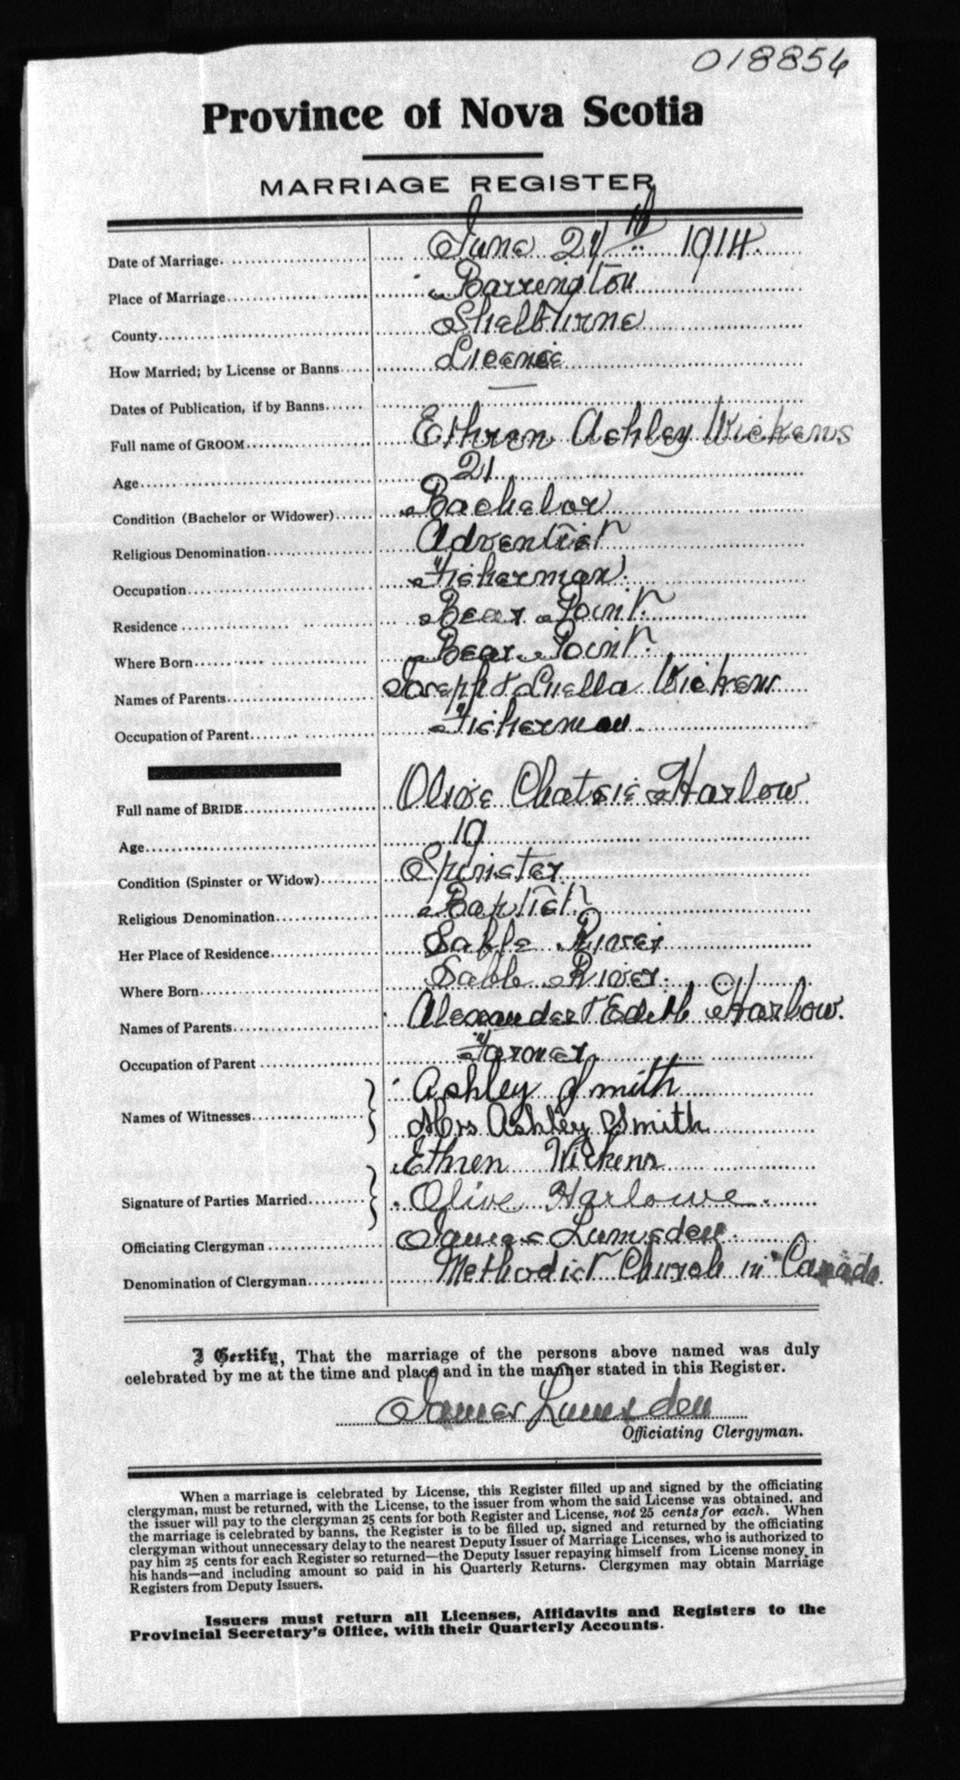 018854
Province of Nova Scotia
MARRIAGE REGISTER
Date of Marriage June 24th 1914.
Place of Marriage Barrington
County Shelburne
How Married; by License or Banns License
Dates of Publication, if by Banns —
Full name of GROOM Ethren Ashley Wickens
Age 21
Condition (Bachelor or Widower) Bachelor
Religious Denomination Adventist
Occupation Fisherman.
Residence Bear Point.
Where Born Bear Point.
Names of Parents Joseph & Luella Wickens
Occupation of Parent Fisherman
Full name of BRIDE Olive Chatsie Harlow
Age 19
Condition (Spinster or Widow) Spinster
Religious Denomination Baptist
Her Place of Residence Sable River
Where Born Sable River.
Names of Parents Alexander & Edith Harlow.
Occupation of Parent Farmer.
Names of Witnesses Ashley Smith
Mrs Ashley Smith
Signature of Parties Married Ethren Wickens
Olive Harlowe.
Officiating Clergyman James Lumsden.
Denomination of Clergyman Methodist Church in Canada.
I Certify, That the marriage of the persons above named was duly
celebrated by me at the time and place and in the manner stated in this Register.
James Lumsden
Officiating Clergyman.
When a marriage is celebrated by License, this Register filled up and signed by the officiating
clergyman, must be returned, with the License, to the issuer from whom the said License was obtained, and
the issuer will pay to the clergyman 25 cents for both Register and License, not 25 cents for each. When
the marriage is celebrated by banns, the Register is to be filled up, signed and returned by the officiating
clergyman without unnecessary delay to the nearest Deputy Issuer of Marriage Licenses, who is authorized to
pay him 25 cents for each Register so returned—the Deputy Issuer repaying himself from License money in
his hands—and including amount so paid in his Quarterly Returns. Clergymen may obtain Marriage
Registers from Deputy Issuers.
Issuers must return all Licenses, Affidavits and Registers to the
Provincial Secretary's Office, with their Quarterly Accounts.